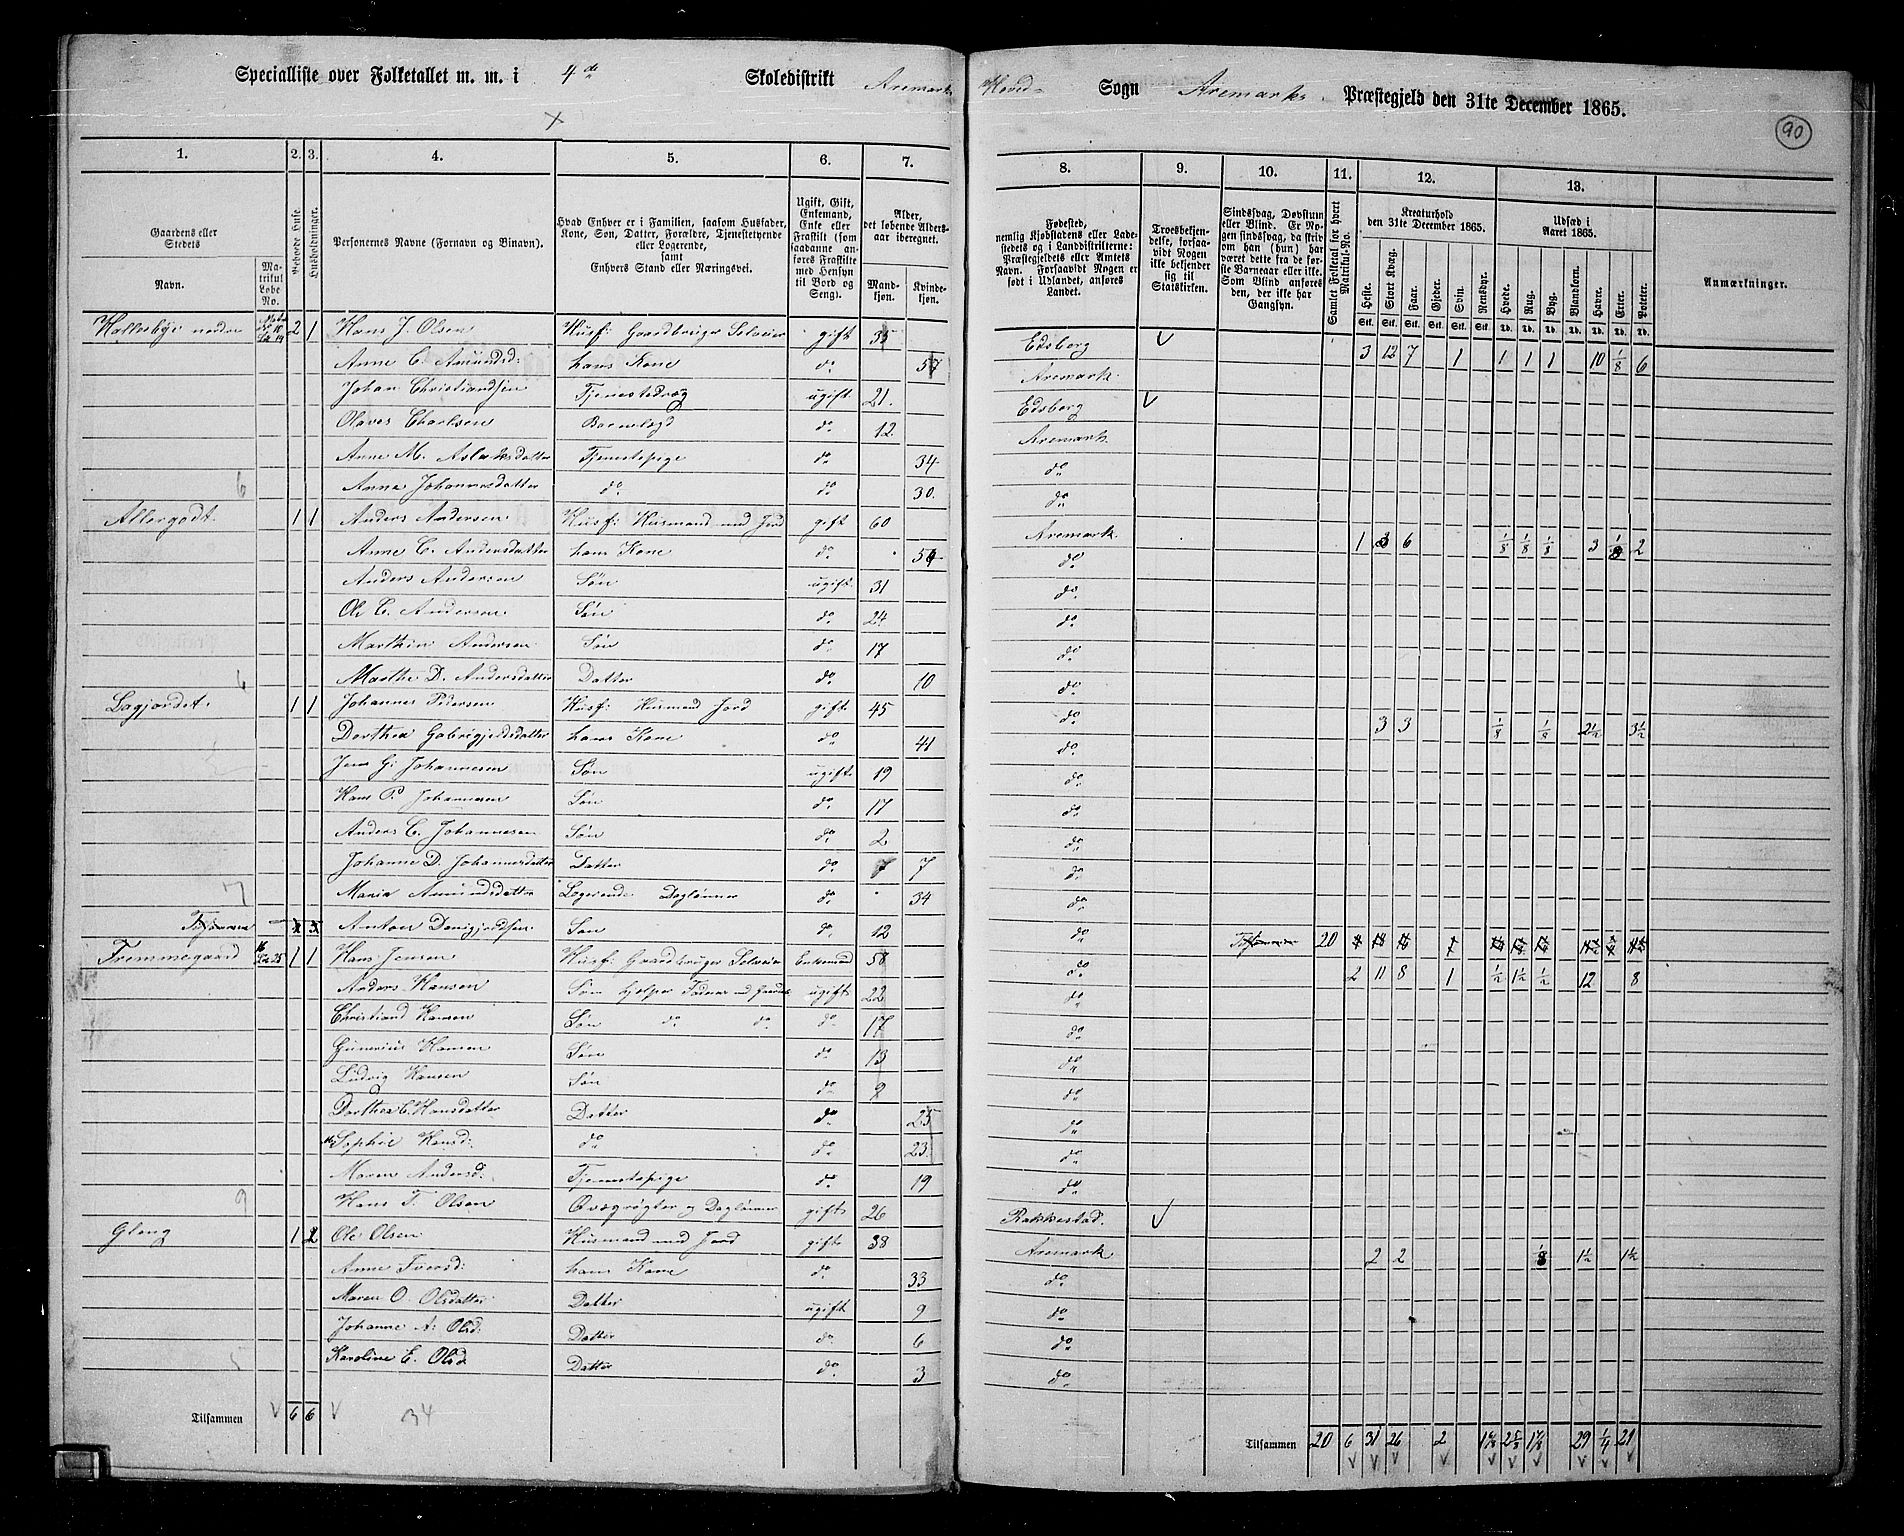 Specialliste over Folketallet m. m. i 4de Skoledistrikt Aremark Hoved- Sogn Aremarks Præstegjeld den 31te December 1865.
90
1. 2. 3. 4. 5. 6. 7. 8. 9. 10. 11. 12. 13.
Gaardens eller Stedets Navn.
Matrikul Løbe No.
Beboede Huse.
Husholdninger.
Personernes Navne (Fornavn og Binavn).
Hvad Enhver er i Familien, saasom Husfader, Kone, Søn, Datter, Forældre, Tjenestetyende eller Logerende, samt Enhvers Stand eller Næringsvei.
Ugift, Gift, Enkemand, Enke eller Fraskilt (som saadanne anføres Fraskilte med Hensyn til Bord og Seng).
Alder, det løbende Aldersaar iberegnet.
Mandkjøn. Kvindekjøn.
Fødested, nemlig Kjøbstadens eller Ladestedets og i Landdistrikterne: Præstegjeldets eller Amtets Navn. Forsaavidt Nogen er født i Udlandet, anføres Landet.
Troesbekjendelse, forsaavidt Nogen ikke bekjender sig til Statskirken.
Sindssvag, Døvstum eller Blind. Er Nogen sindssvag, da om han (hun) har været dette fra de første Barneaar eller ikke. Som Blind anføres den, der ikke har Gangsyn.
Samlet Folketal for hvert Matrikuls-No.
Kreaturhold den 31te December 1865.
Heste. Stort Kvæg. Faar. Gjeder. Svin. Rensdyr.
Udsæd i Aaret 1865.
Hvede. Rug. Byg. Blandkorn. Havre. Erter. Poteter.
Anmærkninger.
Kallebye nedre 2 1 Hans J. Olsen Husf: Gaardbruger Selveier gift 35 Edsberg 3 12 7 1 1 1 1 10 1/8 6
Anne C. Amundsd: hans Kone do 57 Aremark
Johan Christiandsen Tjenestedræg ugift 21. Edsberg
Olaves Charlsen Barnelægd do 12. Aremark
Anne M. Aslaksdatter Tjenestepige do 34 do
6 Anne Johannesdatter do do 30. do
Allergodt 1 1 Anders Andersen Husf: Husmand med Jord gift 60 Aremark 1 3 6 1/8 1/8 1/8 3 1/8 2
Anne C. Andersdatter hans Kone do do
Anders Andersen Søn ugift 31 do
Ole C. Andersen Søn do 24 do
Marthin Andersen Søn do 17 do
6 Marthe D. Andersdatter Datter do 10 do
Lagjordet 1 1 Johannes Pedersen Husf: Husmand Jord gift 45 do 3 3 1/8 1/8 2 1/2 3 1/2
Dorthea hans Kone do 41 do
Jens G. Johannesen Søn ugift 19 do
Hans P. Johannesen Søn do 17 do
Anders C. Johannesen Søn do 2 do
Johanne D. Johannesdatter Datter do 7 do
7 Maria Amundsdatter Logerende Daglønner do 34 do
Anton Søn do 12 do 20
Fremmegaard 16 Lbe 25 1 1 Hans Jensen Husf: Gaardbruger Selveier Enkemand 58 do 2 11 8 1 1/2 1 1/2 1/2 12 8
Anders Hansen Søn hjelper Fader ugift 22 do
Christiand Hansen Søn do do do 17 do
Gunerius Hansen Søn do 13 do
Ludvig Hansen Søn do 9 do
Dorthea C. Hansdatter Datter do 25 do
Sophie Hansd: do do 23 do
Maren Andersd: Tjenestepige do 19 do
9 Hans T. Olsen Qvægrøgter og Daglønner gift 26 Rakkestad.
Gleng 1 2 Ole Olsen Husmand med Jord gift 38 Aremark 2 2 1/8 1 1/2 1 1/2
Anne Iversd: hans Kone do 33 do
Maren O. Olsdatter Datter ugift 9 do
Johanne A: Olsd: Datter do 6 do
5 Karoline E. Olsd: Datter do 3 do
Tilsammen 6 6 34
Tilsammen 20 6 31 26 2 29 1/4 21